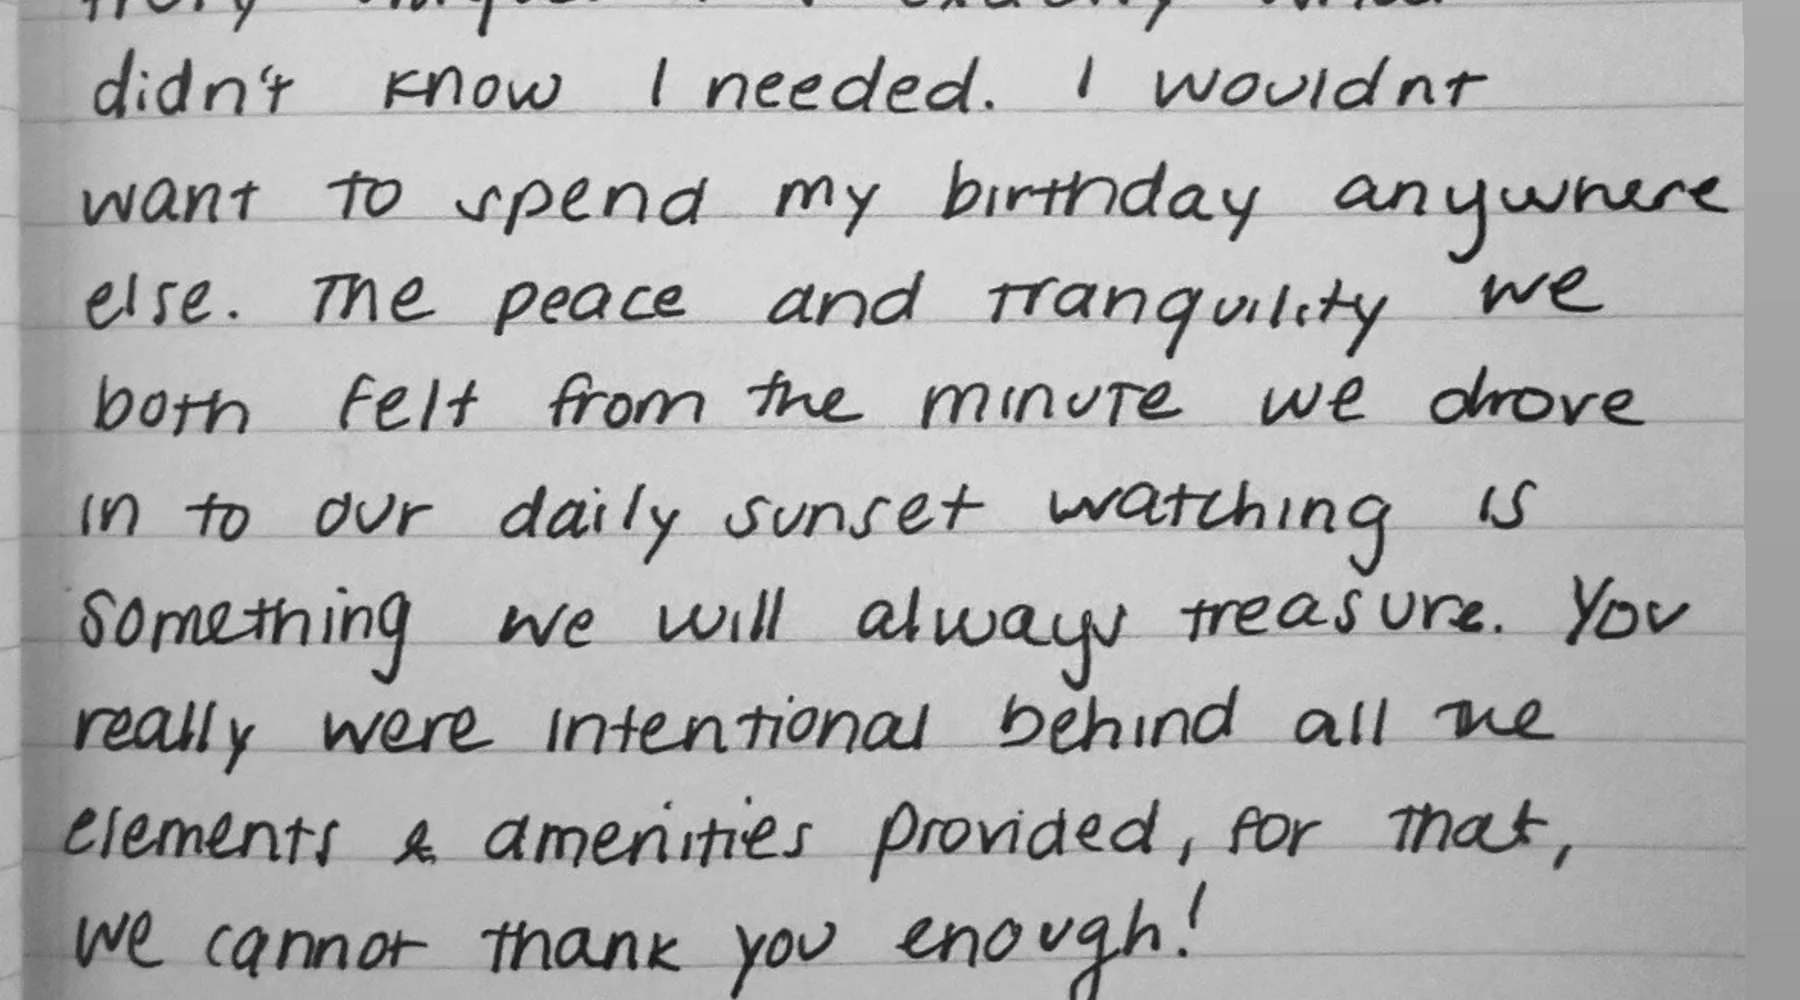 truly unique
exactly what
didn't know I needed. I wouldnt
want to spend my birthday anywhere
else. The peace and tranquility we
both felt from the minute we drove
in to our daily sunset watching is
something we will always treasure. You
really were intentional behind all the
elements & amenities provided, for that,
we cannot thank you enough!